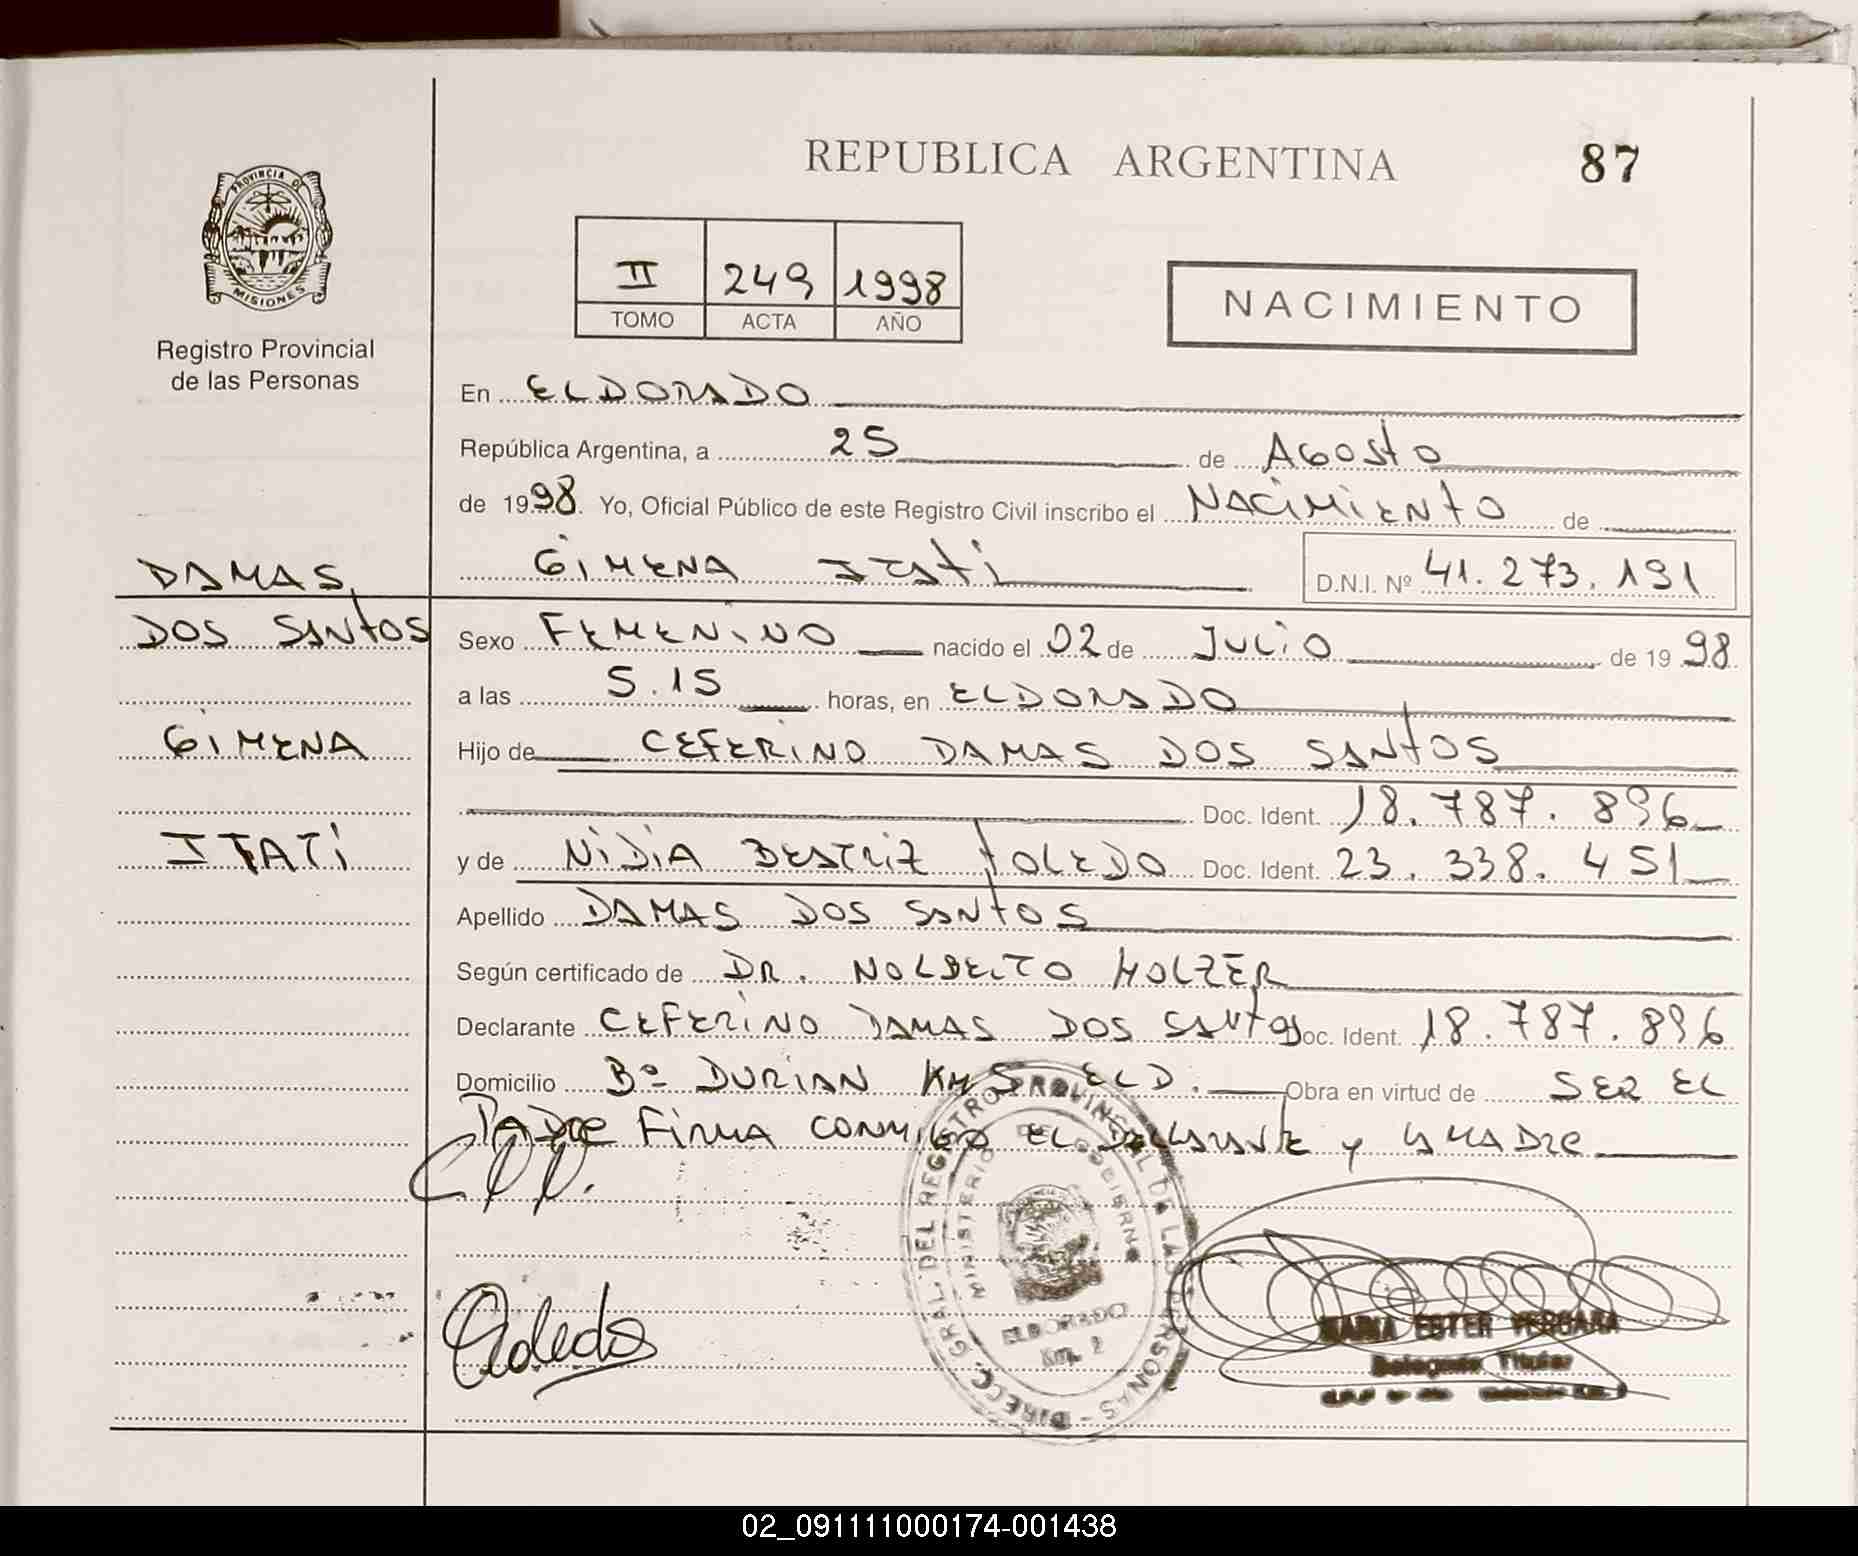 REPUBLICA ARGENTINA
87
PROVINCIA DE
MISIONES
Registro Provincial
de las Personas
II 249 1998
TOMO ACTA AÑO
NACIMIENTO
En ELDORADO
República Argentina, a 25 de AGOSTO
de 1998. Yo, Oficial Público de este Registro Civil inscribo el NACIMIENTO de
GIMENA ITATI
D.N.I. Nº 41.273.191
DAMAS
DOS SANTOS
GIMENA
ITATI
Sexo FEMENINO nacido el 02 de JULIO de 1998
a las 5.15 horas, en ELDORADO
Hijo de CEFERINO DAMAS DOS SANTOS
Doc. Ident. 18.787.896
y de NIDIA BEATRIZ TOLEDO Doc. Ident. 23.338.451
Apellido DAMAS DOS SANTOS
Según certificado de DR. NOLBERTO HOLZER
Declarante CEFERINO DAMAS DOS SANTOS Doc. Ident. 18.787.896
Domicilio Bº DURIAN KM 5 ELD. Obra en virtud de SER EL
PADRE FIRMA CONMIGO EL DECLARANTE y LA MADRE
C.D.D.
Toledo
DIRECC. GRAL. DEL REGISTRO PROVINCIAL DE LAS PERSONAS
MINISTERIO DE GOBIERNO
ELDORADO
Km. 2
MARIA ESTER VERGARA
Delegada Titular
02_091111000174-001438